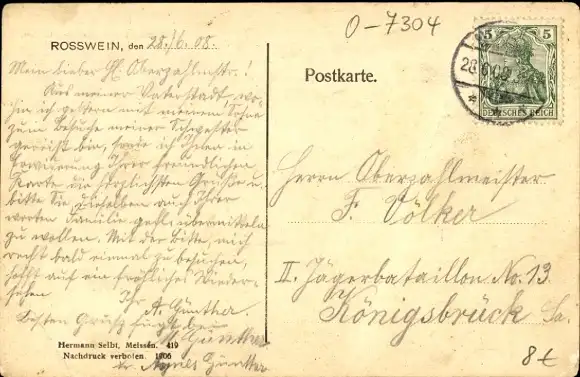 O-7304
ROSSWEIN, den 28./6.08.
Mein lieber H. Oberzahlmstr.!
Aus meiner Vaterstadt, wo-
hin ich gestern mit meinem Sohne
zum Besuche meiner Schwester
gereist bin, sende ich Ihnen in
Erwiderung Ihrer freundlichen
Karte die herzlichsten Grüße u.
bitte Sie, dieselben auch Ihrer
werten Familie gefl. übermitteln
zu wollen. Mit der Bitte, mich
recht bald einmal zu besuchen,
hofft auf ein fröhliches Wieder-
sehen
Ihr A. Günther.
Besten Gruß fügt bei
Günther
Agnes Günther
Hermann Seibt, Meissen. 419
Nachdruck verboten. 1906
Postkarte.
5 5
DEUTSCHES REICH
Herrn Oberzahlmeister
F. Völker
II. Jägerbataillon No. 13
Königsbrück Sa.
8€